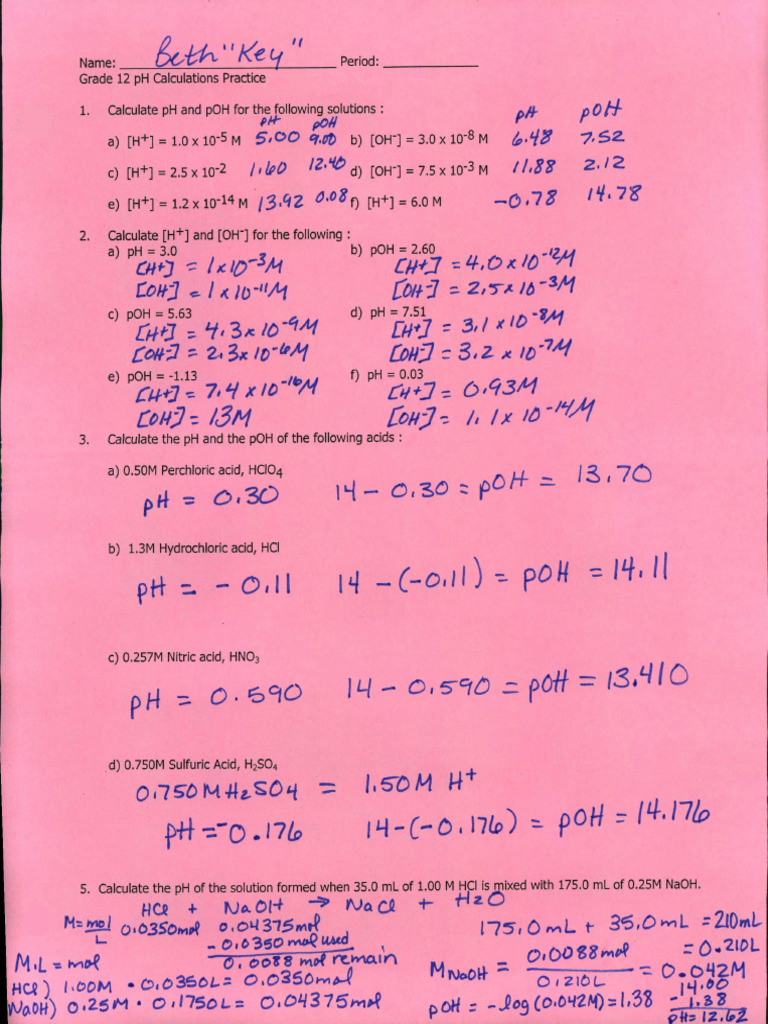 Name: Beth "Key" Period: ____________
Grade 12 pH Calculations Practice
1. Calculate pH and pOH for the following solutions :
pH pOH pH pOH
a) [H⁺] = 1.0 x 10⁻⁵ M 5.00 9.00 b) [OH⁻] = 3.0 x 10⁻⁸ M 6.48 7.52
c) [H⁺] = 2.5 x 10⁻² 1.60 12.40 d) [OH⁻] = 7.5 x 10⁻³ M 11.88 2.12
e) [H⁺] = 1.2 x 10⁻¹⁴ M 13.92 0.08 f) [H⁺] = 6.0 M -0.78 14.78
2. Calculate [H⁺] and [OH⁻] for the following :
a) pH = 3.0 b) pOH = 2.60
[H+] = 1x10⁻³M [H+] = 4.0x10⁻¹²M
[OH⁻] = 1x10⁻¹¹M [OH⁻] = 2.5x10⁻³M
c) pOH = 5.63 d) pH = 7.51
[H+] = 4.3x10⁻⁹M [H+] = 3.1x10⁻⁸M
[OH⁻] = 2.3x10⁻⁶M [OH⁻] = 3.2x10⁻⁷M
e) pOH = -1.13 f) pH = 0.03
[H+] = 7.4x10⁻¹⁶M [H+] = 0.93M
[OH⁻] = 13M [OH⁻] = 1.1x10⁻¹⁴M
3. Calculate the pH and the pOH of the following acids :
a) 0.50M Perchloric acid, HClO₄
pH = 0.30 14 - 0.30 = pOH = 13.70
b) 1.3M Hydrochloric acid, HCl
pH = -0.11 14 - (-0.11) = pOH = 14.11
c) 0.257M Nitric acid, HNO₃
pH = 0.590 14 - 0.590 = pOH = 13.410
d) 0.750M Sulfuric Acid, H₂SO₄
0.750 M H₂SO₄ = 1.50M H⁺
pH = -0.176 14-(-0.176) = pOH = 14.176
5. Calculate the pH of the solution formed when 35.0 mL of 1.00 M HCl is mixed with 175.0 mL of 0.25M NaOH.
HCl + NaOH → NaCl + H₂O
M = mol/L 0.0350mol 0.04375mol 175.0mL + 35.0mL = 210mL
- 0.0350 mol used = 0.210L
M.L = mol 0.0088 mol remain M NaOH = 0.0088mol/0.210L = 0.042M
HCl) 1.00M · 0.0350L = 0.0350mol 14.00
NaOH) 0.25M · 0.1750L = 0.04375mol pOH = -log(0.042M) = 1.38 - 1.38
pH = 12.62